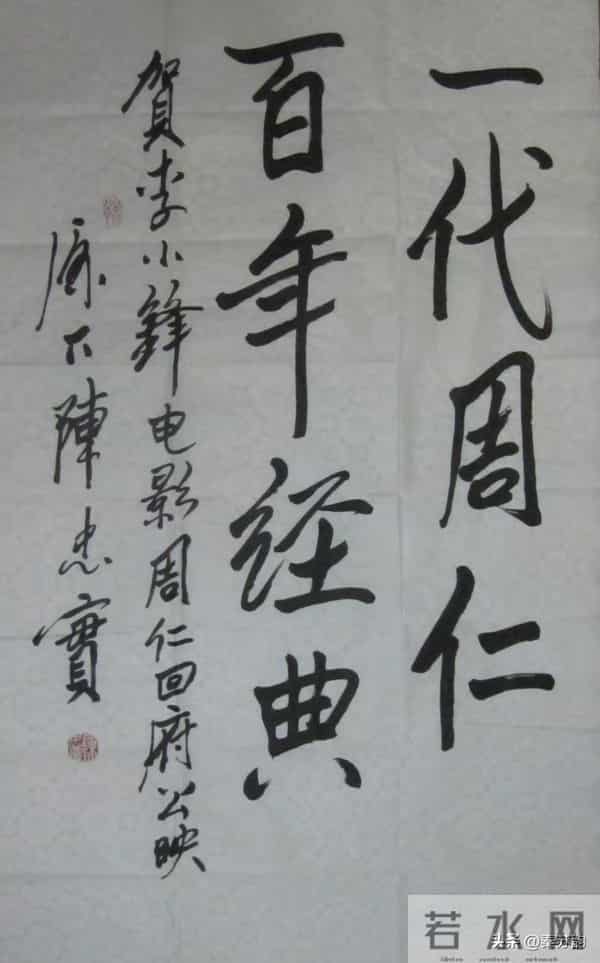 一代周仁
百年经典
賀李小鋒电影周仁回府公映
原下陳忠實
若水网
头条